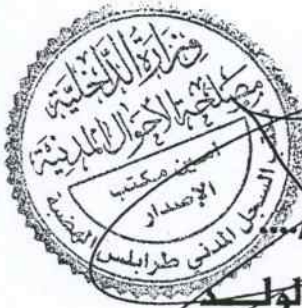 وزارة الداخلية
مصلحة الاحوال المدنية
امين مكتب
الإصدار
السجل المدني طرابلس الهضبة